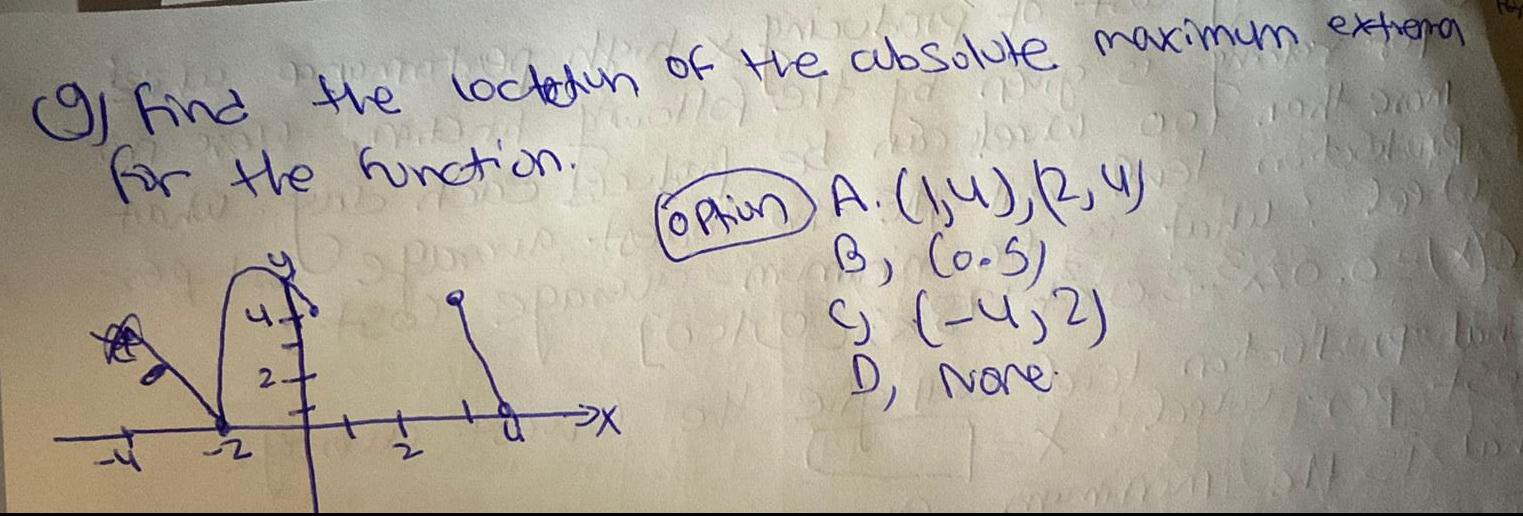 9) Find the location of the absolute maximum extrema
for the function.
option A. (1,4), (2,4)
B, (0.5)
C, (-4,2)
D, None.
y
4
2
-4 -2 2 4 x